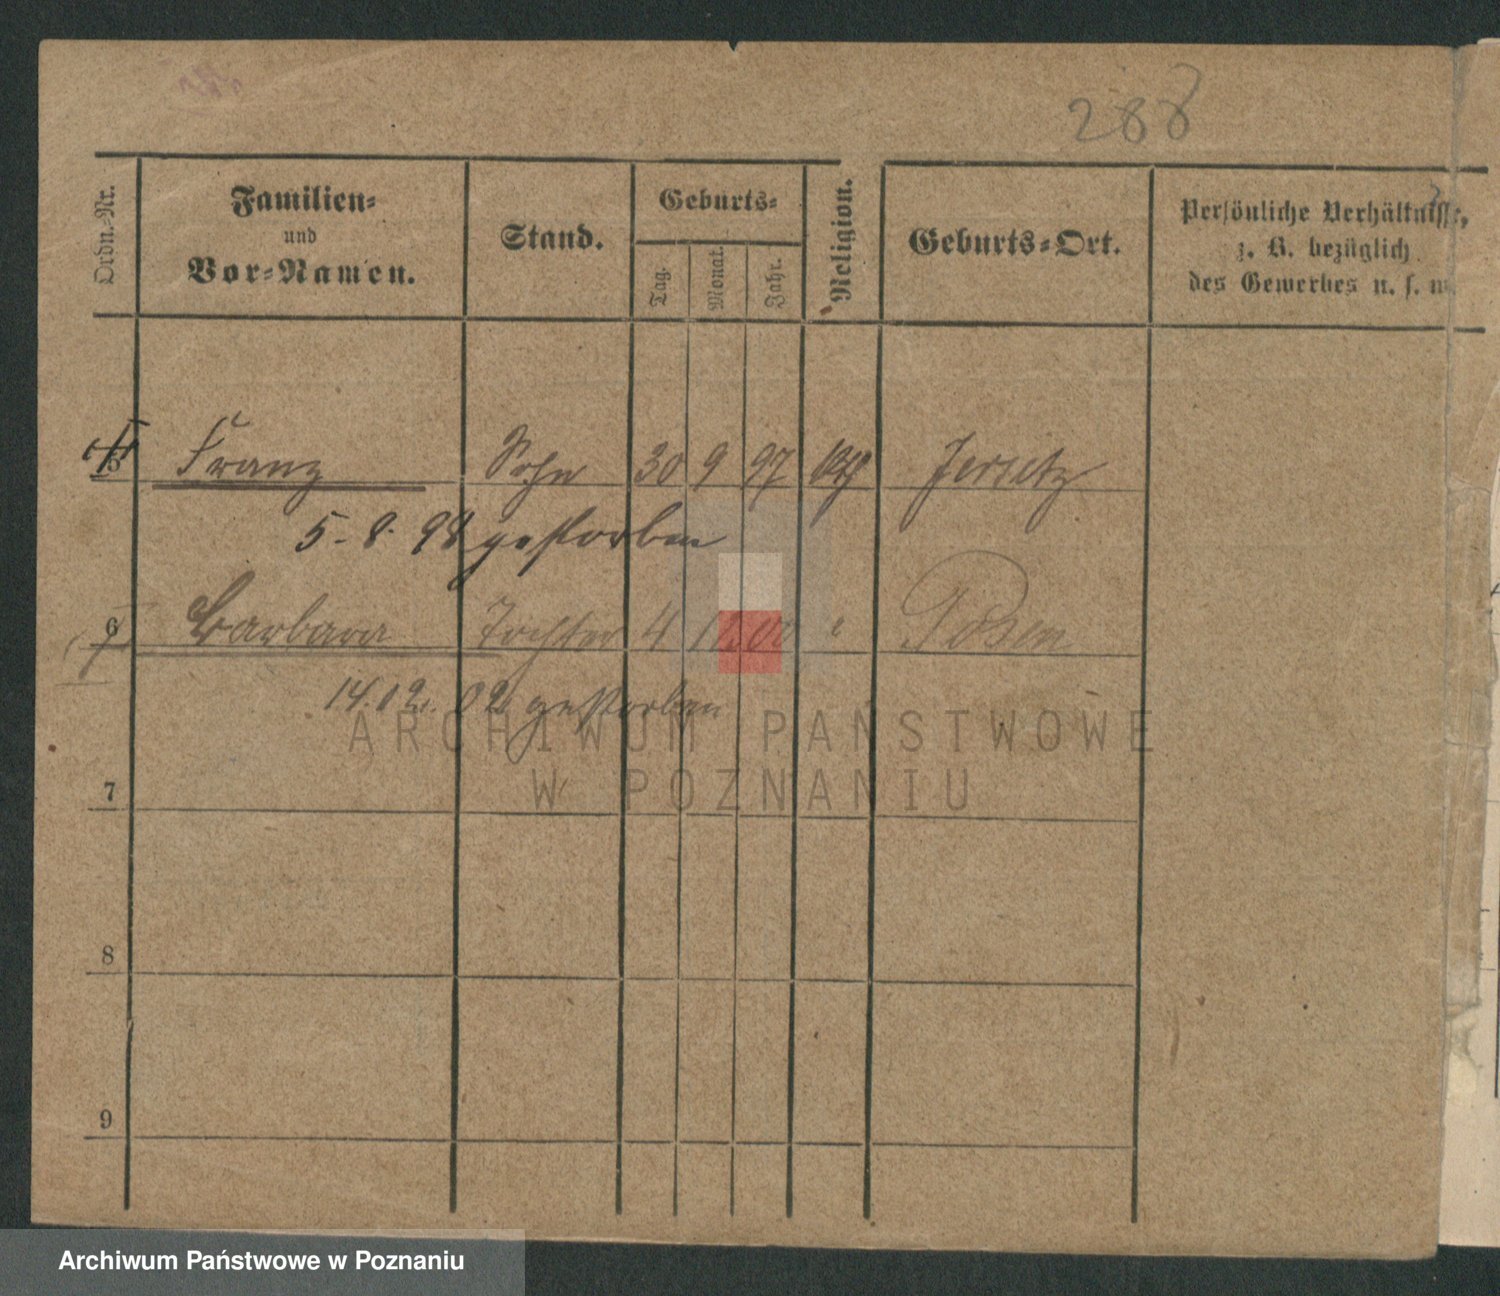 288
Ordn.-Nr.
Familien-
und
Vor-Namen.
Stand.
Geburts-
Tag.
Monat.
Jahr.
Religion.
Geburts-Ort.
Persönliche Verhältnisse,
z. B. bezüglich
des Gewerbes u. s. w.
5 Franz Sohn 30 9 97 kth Jersitz
5. 8. 98 gestorben
6 Barbara Tochter 4 12 00 " Posen
14. 12. 02 gestorben
ARCHIWUM PAŃSTWOWE
W POZNANIU
7
8
9
Archiwum Państwowe w Poznaniu